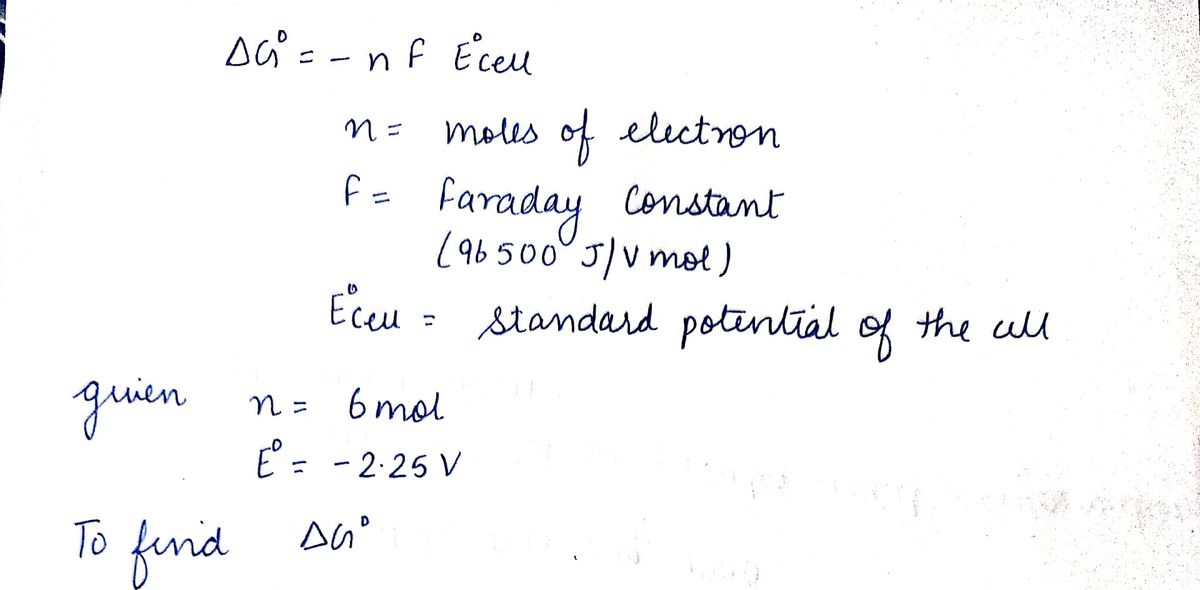 ΔG° = - n F E°cell
n = moles of electron
F = Faraday Constant
(96500 J/V mol)
E°cell = standard potential of the cell
given n = 6 mol
E° = - 2.25 V
To find ΔG°